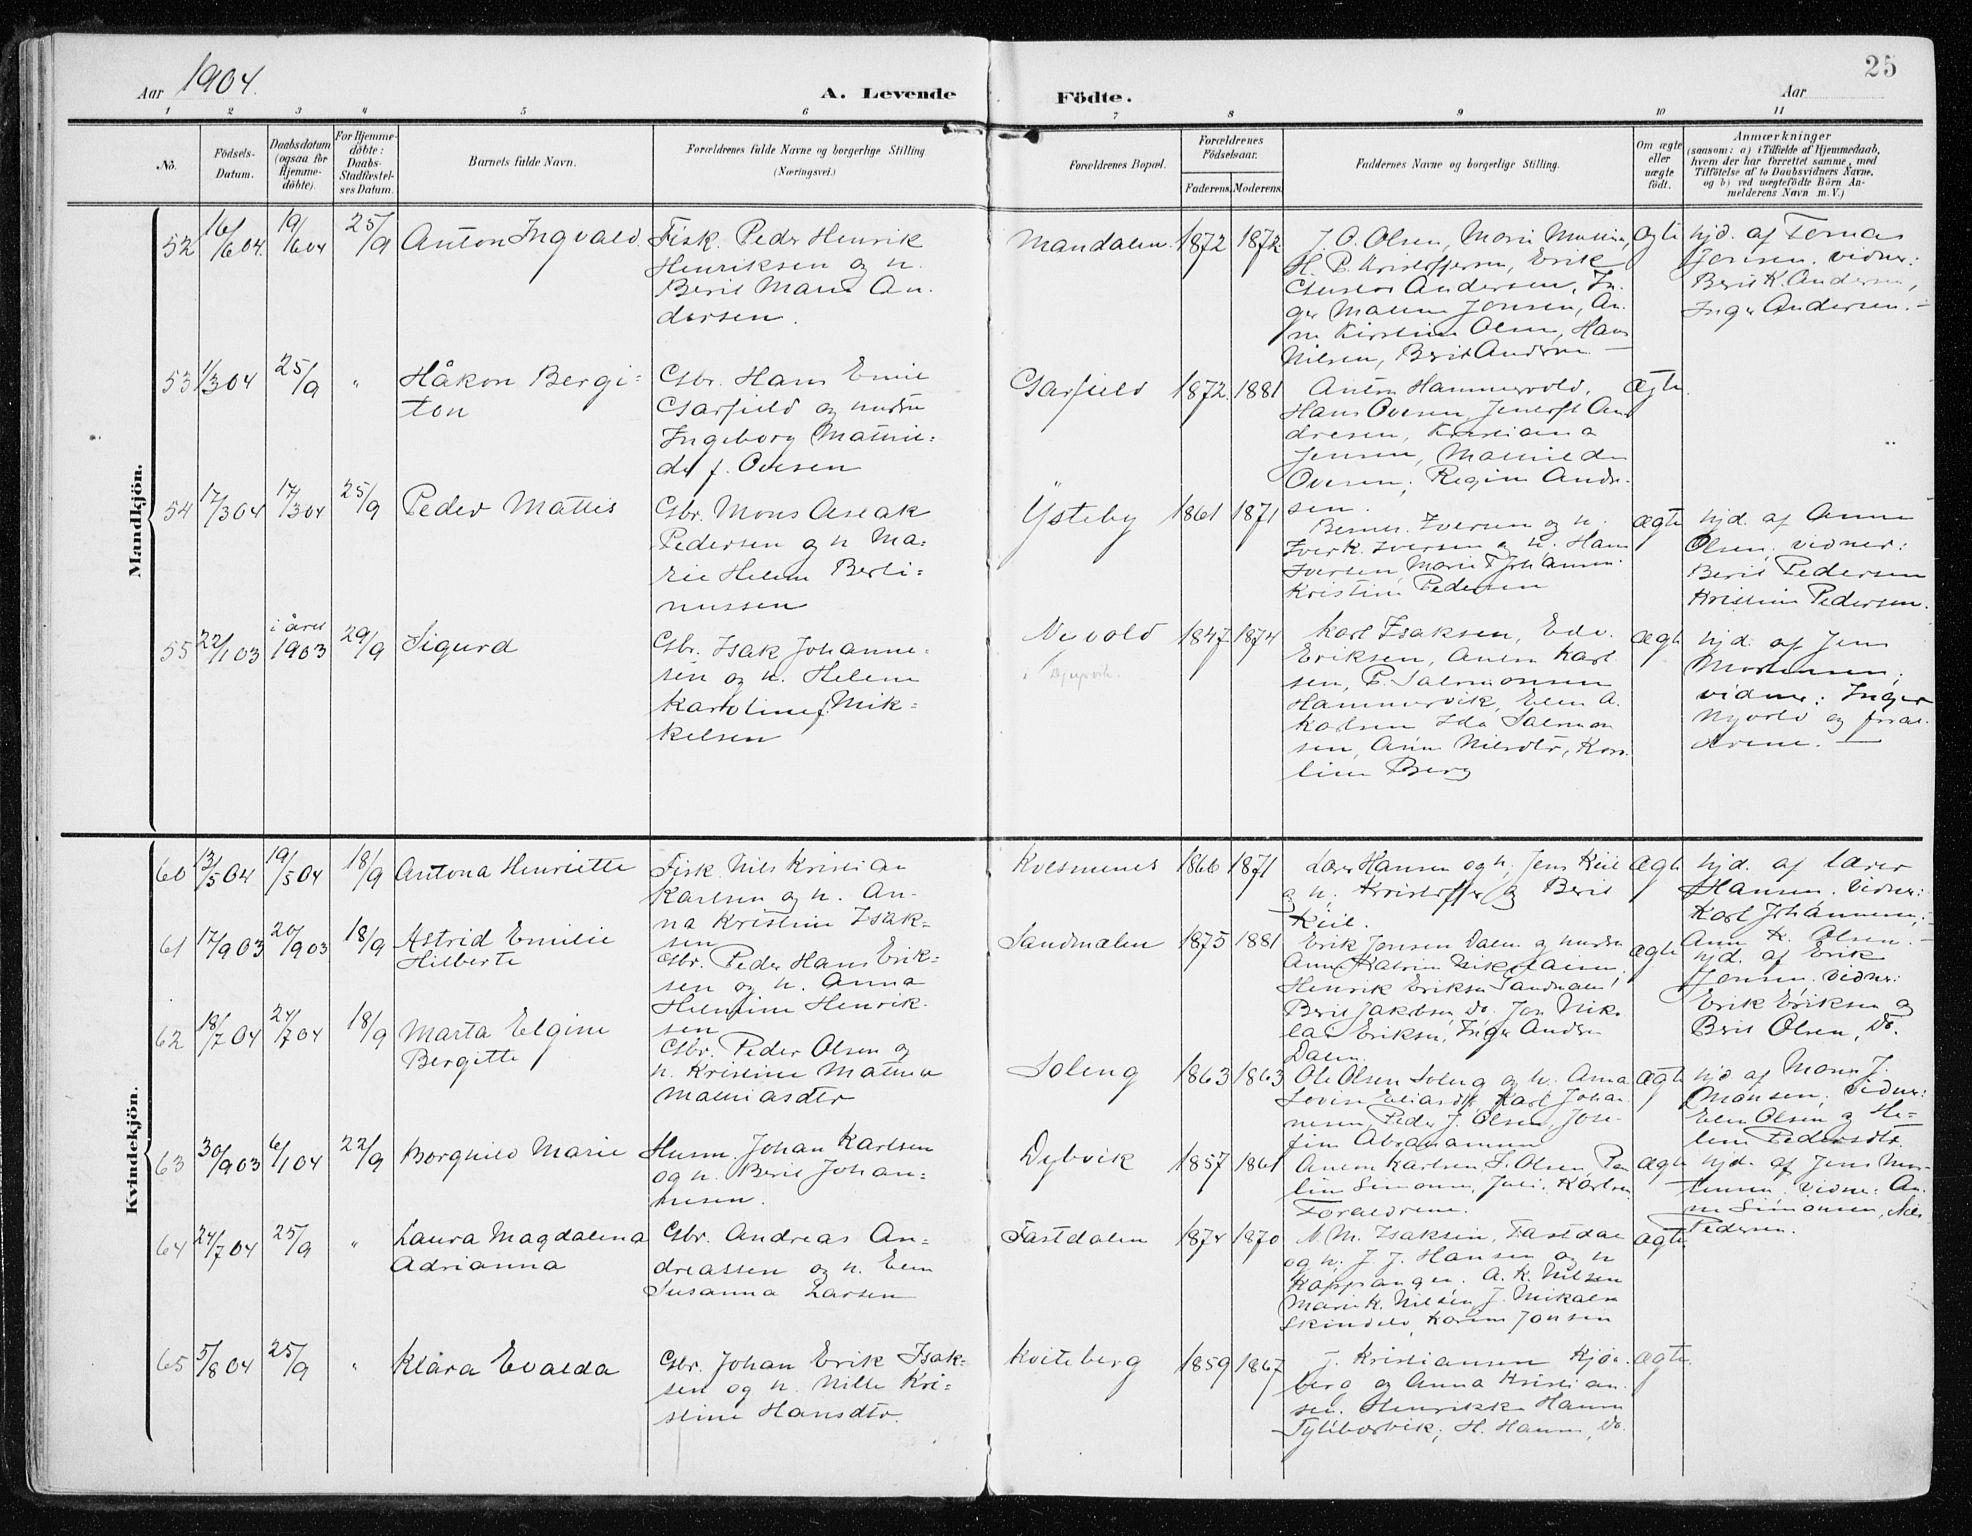 25
Aar 1904.
A. Levende Födte.
Aar
1 2 3 4 5 6 7 8 9 10 11
No.
Födsels-
Datum.
Daabsdatum
(ogsaa for
Hjemme-
döbte).
For Hjemme-
döbte:
Daabs-
Stadfæstel-
ses Datum.
Barnets fulde Navn.
Forældrenes fulde Navne og borgerlige Stilling
(Næringsvei.)
Forældrenes Bopæl.
Forældrenes
Födselsaar.
Faderens. Moderens.
Faddernes Navne og borgerlige Stilling.
Om ægte
eller
uægte
födt.
Anmærkninger
(saasom: a) i Tilfælde af Hjemmedaab,
hvem der har forrettet samme, med
Tilföielse af to Daabsvidners Navne,
og b) ved uægtefödte Börn An-
melderens Navn m. V.)
Mandkjön.
52 16/6 04. 19/6 04 25/9 Anton Ingvald.
Fisk. Peder Henrik
Henriksen og h.
Berit Marie An-
dersen.
Mandalen. 1872 1872.
J. O. Olsen, Marie
H. P. Kristoffersen, Erik
Andersen, In-
ger Jonsen, An-
ne Kirstine Olsen, Hans
Nilsen, Berit Andersen
ægte
hjd. af Tomas
Jonsen. vidner:
Berit K. Andersen,
Inger Andersen.
53 1/3 04 25/9 " Håkon Bergi-
ton
Gbr. Hans Emil
Garfield og hustru
Ingeborg Mathil-
de f. Ovesen
Garfield 1872. 1881
Anton Hammervold,
Hans Ovesen, An-
dresen, Kristiana
Jensen, Mathilde
Ovesen, Regine Andre-
sen.
ægte.
54 17/3 04 17/3 04 25/9 Peder Mattis
Gbr. Mons Aslak
Pedersen og h. Ma-
rie Helene Berti-
nussen
Ysteby 1861 1871
Iversen og h.
Iver K. Iversen og h. Hans
Iversen, Marie
Kristine Pedersen
ægte
hjd. af Anne
Olsen, vidner:
Berit Pedersen
Kristine Pedersen.
55 22/1 03 i året
1903 29/9 Sigurd
Gbr. Isak Johanne-
sen og h. Helene
Karoline f. Mik-
kelsen
Nyvold 1847. 1874
Karl Isaksen, Edv.
Eriksen, Anton Karl-
sen, P. Salomonsen
Hammervik, Elen A.
Karlsen Ida Salomon-
sen, Ane Nilsdtr, Karo-
line Berg
ægte
hjd. af Jens
Mortensen;
vidner: Inger
Nyvold og foræl-
drene.
Kvindekjön.
60 13/5 04 19/5 04 18/9 Antona Henriette
Fisk. Nils Kristian
Karlsen og h. An-
na Kristine Isak-
sen
Kvesmenes 1866 1871
Lærer Hansen og h, Jens Keil
og h, Kristoffer og Berit
Keil.
ægte
hjd. af lærer
Hansen. vidner:
Karl Johannesen,
Ane K. Olsen.
61 17/9 03 20/9 03 18/9 Astrid Emilie
Hilberte
Gbr. Peder Hans Erik-
sen og h. Anna
Helmine Henrik-
sen
Sandmælen 1875 1881
Erik Jonsen Dalen og hustru
Anne Katrine Nikolaisen,
Henrik Eriksen Sandmælen,
Berit Jakobsen Do. Jon Niko-
lai Eriksen, Inger Andersen
Dalen.
ægte
hjd. af Erik
Jonsen. vidner:
Erik Eriksen og
Berit Olsen, Do.
62 18/7 04 24/7 04 18/9 Marta Elgine
Bergitte
Gbr. Peder Olsen og
h. Kristine Mathea
Mathiasdtr
Soleng 1863 1863
Ole Olsen Soleng og h. Anna
Lovise Karl Johan-
nesen, Peder J. Olsen, Jose-
fine Abrahamsen
ægte
hjd af Mons J.
Monsen; vidner:
Elen Olsen og He-
line Pedersdtr.
63 30/9 03 6/1 04 22/9 Borghild Marie
Husm. Johan Karlsen
og h. Berit Johan-
nesen.
Dybvik 1857 1861
Anton Karlsen, S. Olsen, Pau-
line Simonsen, Karlsen
Forældrene.
ægte
hjd. af Jens Mor-
tensen. vidner: An-
ne Simonsen, Nils
Pedersen.
64 24/7 04 25/9 " Laura Magdalena
Adrianna
Gbr. Andreas An-
dreassen og h. Elen
Susanna Larsen
Fastdalen 1874 1870
N. M. Isaksen, Fastdal
og h; J. J. Hansen og h
Koppangen. A. K. Nilsen
Marie K. Nilsen, J. Mikalsen
Skindelv, Karen Jonsen
ægte.
65 5/8 04 25/9 " Klara Evalda
Gbr. Johan Erik Isak-
sen og h. Nille Kri-
stine Hansdtr.
Kviteberg 1859 1867
J. Kristiansen
berg og Anna Kristian-
sen. Henrikke Hansen
H. Hansen, Do.
ægte.